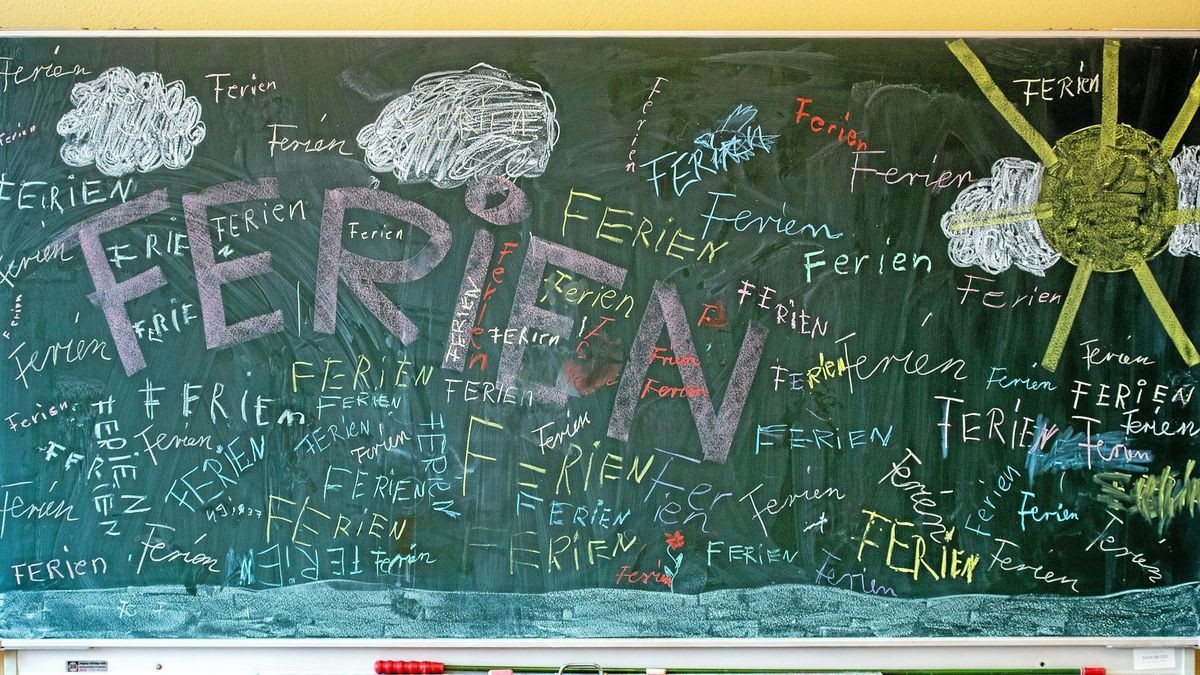 Ferien
Ferien
FERiEN
Ferien
Ferien
Ferien
FERIEN
Ferien
FERiEN
Ferien
Ferien
FERiEN
FERiEN
FERiEN
Ferien
FERIEN
Ferien
FERiEN
Ferien
Ferien
Ferien
Ferien
Ferien
Ferien
FERIEN
FERiEN
Ferien
FERiEN
Ferien
FERiEN
Ferien
Ferien
Ferien
FERiEN
FERiEN
FERIEN
Ferien
FERiEN
FERiEN
Ferien
FERiEN
FERiEN
Ferien
FERiEN
Ferien
FERIEN
Ferien
Ferien
FERiEN
FERiEN
FERIEN
Fer
ien
Ferien
Ferien
Ferien
Ferien
Ferien
FERiEN
FERIEN
FERIEN
FERiEN
Ferien
FERiEN
Ferien
FERiEN
Ferien
FERIEN
Ferien
Ferien
FERIEN
Ferien
Ferien